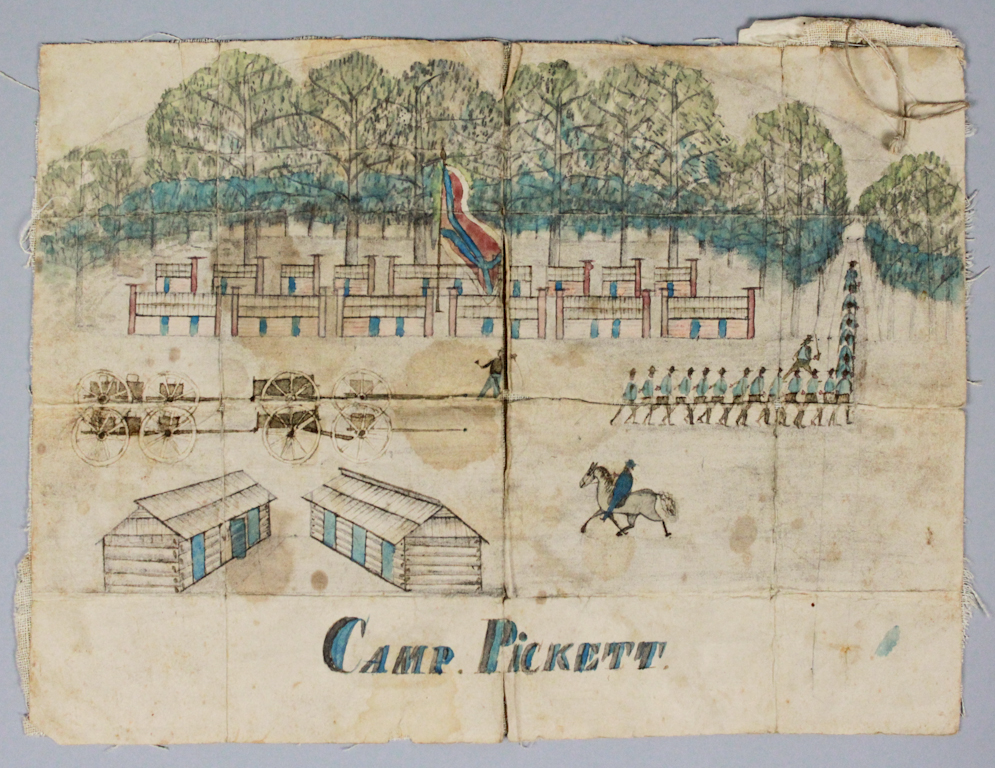 CAMP. PiCKETT.